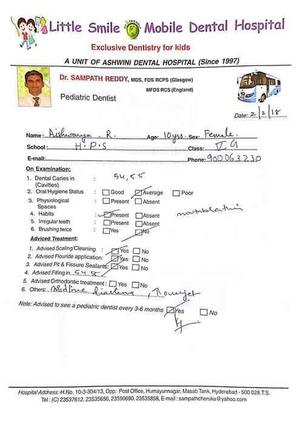 Little Smile Mobile Dental Hospital
Exclusive Dentistry for kids
A UNIT OF ASHWINI DENTAL HOSPITAL (Since 1997)
Dr. SAMPATH REDDY, MDS, FDS RCPS (Glasgow)
MFDS RCPS (England)
Pediatric Dentist
Date: 2/2/18
Name: Aishwarya . R. Age: 10yrs Sex: Female.
School: H.P.S Class: V G
E-mail: Phone: 900063230
On Examination:
1. Dental Caries in (Cavities) 54, 55
2. Oral Hygiene Status : Good Average Poor
3. Physiological Spaces : Present Absent
4. Habits : Present Absent
5. Irregular teeth : Present Absent
6. Brushing twice : Yes No
Adviced Treatment:
1. Advised Scaling/Cleaning : Yes No
2. Advised Flouride application: Yes No
3. Advised Pit & Fissure Sealants: Yes No
4. Advised Filling in 54, 55 Yes No
5. Advised Orthodontic treatment : Yes No
6. Others: Midline diastema,
Note: Advised to see a pediatric dentist every 3-6 months Yes No
Hospital Address: H.No. 10-3-304/13, Opp: Post Office, Humayunnagar, Masab Tank, Hyderabad - 500 028 T.S.
Tel: (C) 23537612, 23535656, 23590690, 23535858, E-mail: sampathcheruku@yahoo.com